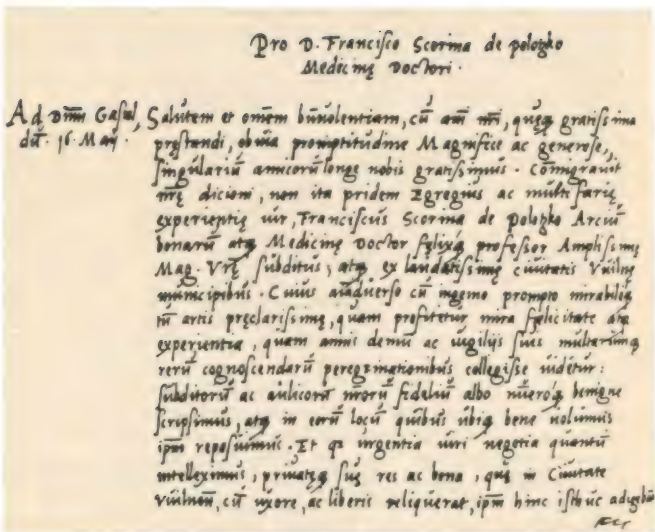 Pro D. Francisco Scorina de poloʒko
Medicinę Doctori ·
Ad Dnm̄ Gastal,
dū · 16 · Maij ·
Salutem et omēm bnuolentiam, cū am̄ nr̄i, quęq̃ gratissima
pręstandi, obuia promptitudine Magnifice ac generose,
singulariū amicorū longe nobis gratissimus · Cōmigrauit
nr̄ę dicioni, non ita pridem Egregius ac multifarię
experientię uir, Franciscus Scorina de Poloʒko Arciū
bonarū atq̃ Medicinę Doctor fęlixq̃ professor Amplissimę
Mag · Vr̄ę subditus, atq̃ ex laudatissimę ciuitatis Vuilnę
municipibus · Cuius aīaduerso cū ingenio prompto mirabiliq̃
tū artis pręclarissimę, quam profitetur mira fęlicitate atq̃
experientia, quam annis demū ac uigilijs suis multarumq̃
rerū cognoscendarū peregrinationibus collegisse uidetur:
subditorū ac aulicorū nr̄orū fideliū albo nūeroq̃ benigne
scripsimus, atq̃ in eorū locū quibus ubiq̃ bene uolumus
ip̄m reposuimus · Et qʒ urgentia uiri negotia quantū
intelleximus, priuatęq̃ suę res ac bona, quę in Ciuitate
Vuilneñ, cū uxore, ac liberis reliquerat, ip̄m hinc isthuc adigebāt